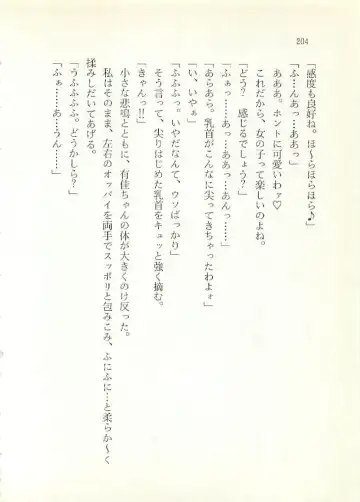 204
「感度も良好ね。ほ～らほらほら♪」
「ふ…んあっ…ああっ」
あああ。ホントに可愛いわァ♡
これだから、女の子って楽しいのよね。
「どう？　感じるでしょう？」
「ふぁっ……あっ…ああっ…あんっ……」
「あらあら。乳首がこんなに尖ってきちゃったわよォ」
「い、いやぁ」
「ふふふっ。いやだなんて、ウソばっかり」
そう言って、尖りはじめた乳首をキュッと強く摘む。
「きゃんっ!!」
小さな悲鳴とともに、有佳ちゃんの体が大きくのけ反った。
私はそのまま、左右のオッパイを両手でスッポリと包みこみ、ふにふに…と柔らか～く
揉みしだいてあげる。
「うふふふふ。どうかしら？」
「ふぁ……あ…うん……」